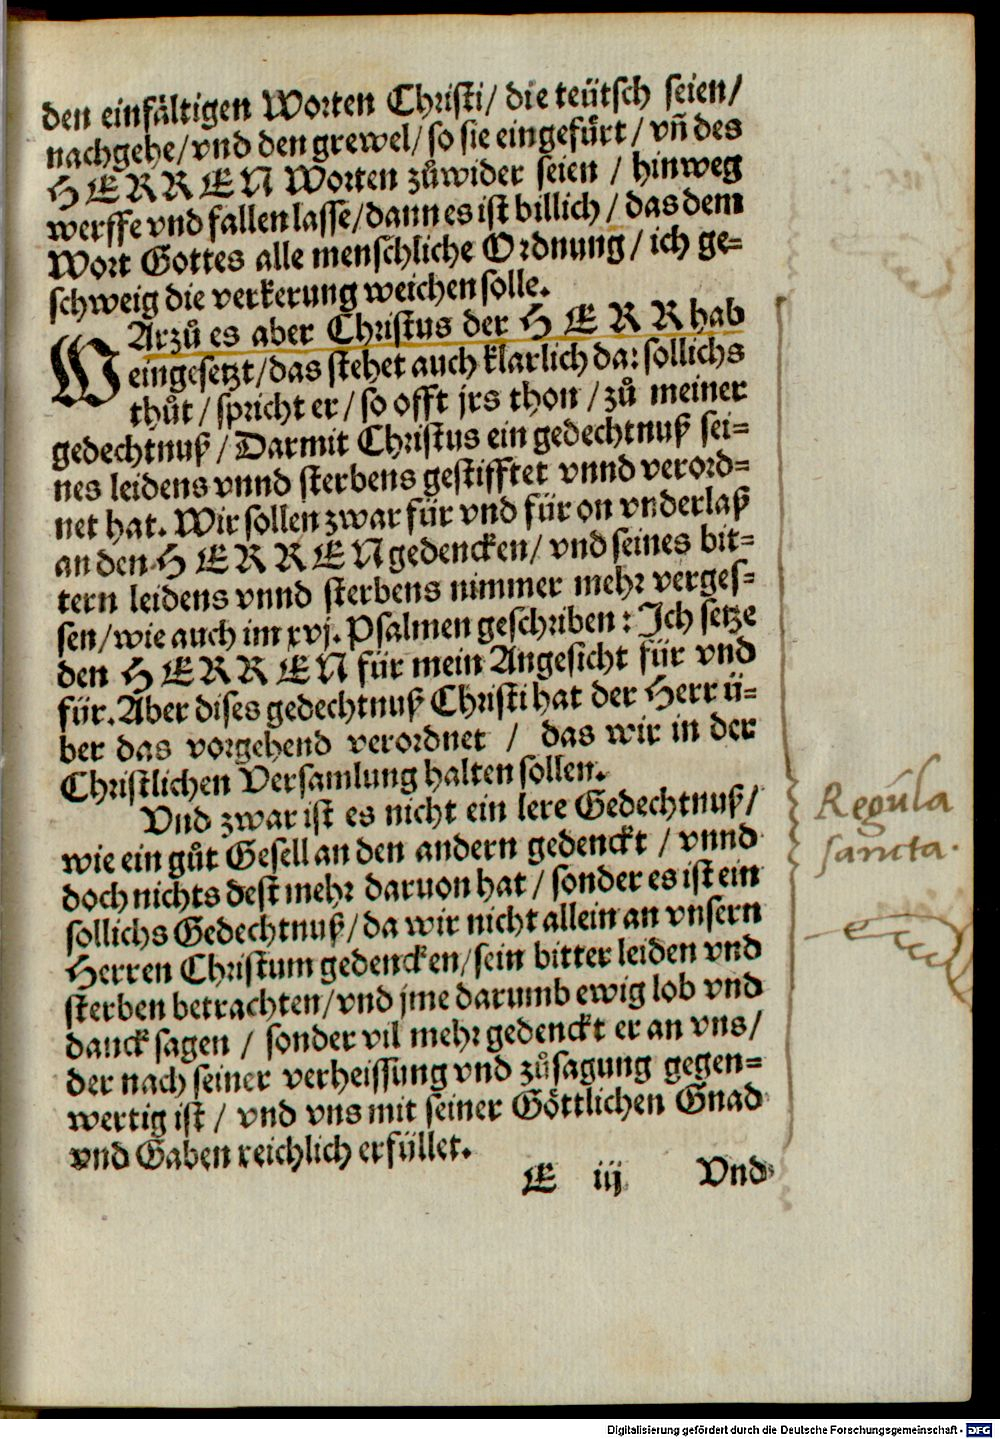 den einfältigen Worten Christi/ die teütsch seien/
nachgehe/ vnd den grewel/ so sie eingefürt/ vñ des
HERREN Worten zůwider seien / hinweg
werffe vnd fallen lasse/ dann es ist billich/ das dem
Wort Gottes alle menschliche Ordnung/ ich ge=
schweig die verkerung weichen solle.
WArzů es aber Christus der HERR hab
eingesetzt/ das stehet auch klarlich da: sollichs
thůt/ spricht er/ so offt jrs thon/ zů meiner
gedechtnuß/ Darmit Christus ein gedechtnuß sei=
nes leidens vnnd sterbens gestifftet vnnd verord=
net hat. Wir sollen zwar für vnd für on vnderlaß
an den HERREN gedencken/ vnd seines bit=
tern leidens vnnd sterbens nimmer mehr verges=
sen/ wie auch im xvj. Psalmen geschriben: Ich setze
den HERREN für mein Angesicht für vnd
für. Aber dises gedechtnuß Christi hat der Herr ü=
ber das vorgehend verordnet / das wir in der
Christlichen Versamlung halten sollen.
Vnd zwar ist es nicht ein lere Gedechtnuß/
wie ein gůt Gesell an den andern gedenckt / vnnd
doch nichts dest mehr daruon hat/ sonder es ist ein
sollichs Gedechtnuß/ da wir nicht allein an vnsern
Herren Christum gedencken/ sein bitter leiden vnd
sterben betrachten/ vnd jme darumb ewig lob vnd
danck sagen / sonder vil mehr gedenckt er an vns/
der nach seiner verheissung vnd zůsagung gegen=
wertig ist / vnd vns mit seiner Göttlichen Gnad
vnd Gaben reichlich erfüllet.
E iij Vnd
Regula
sancta.
Digitalisierung gefördert durch die Deutsche Forschungsgemeinschaft - DFG